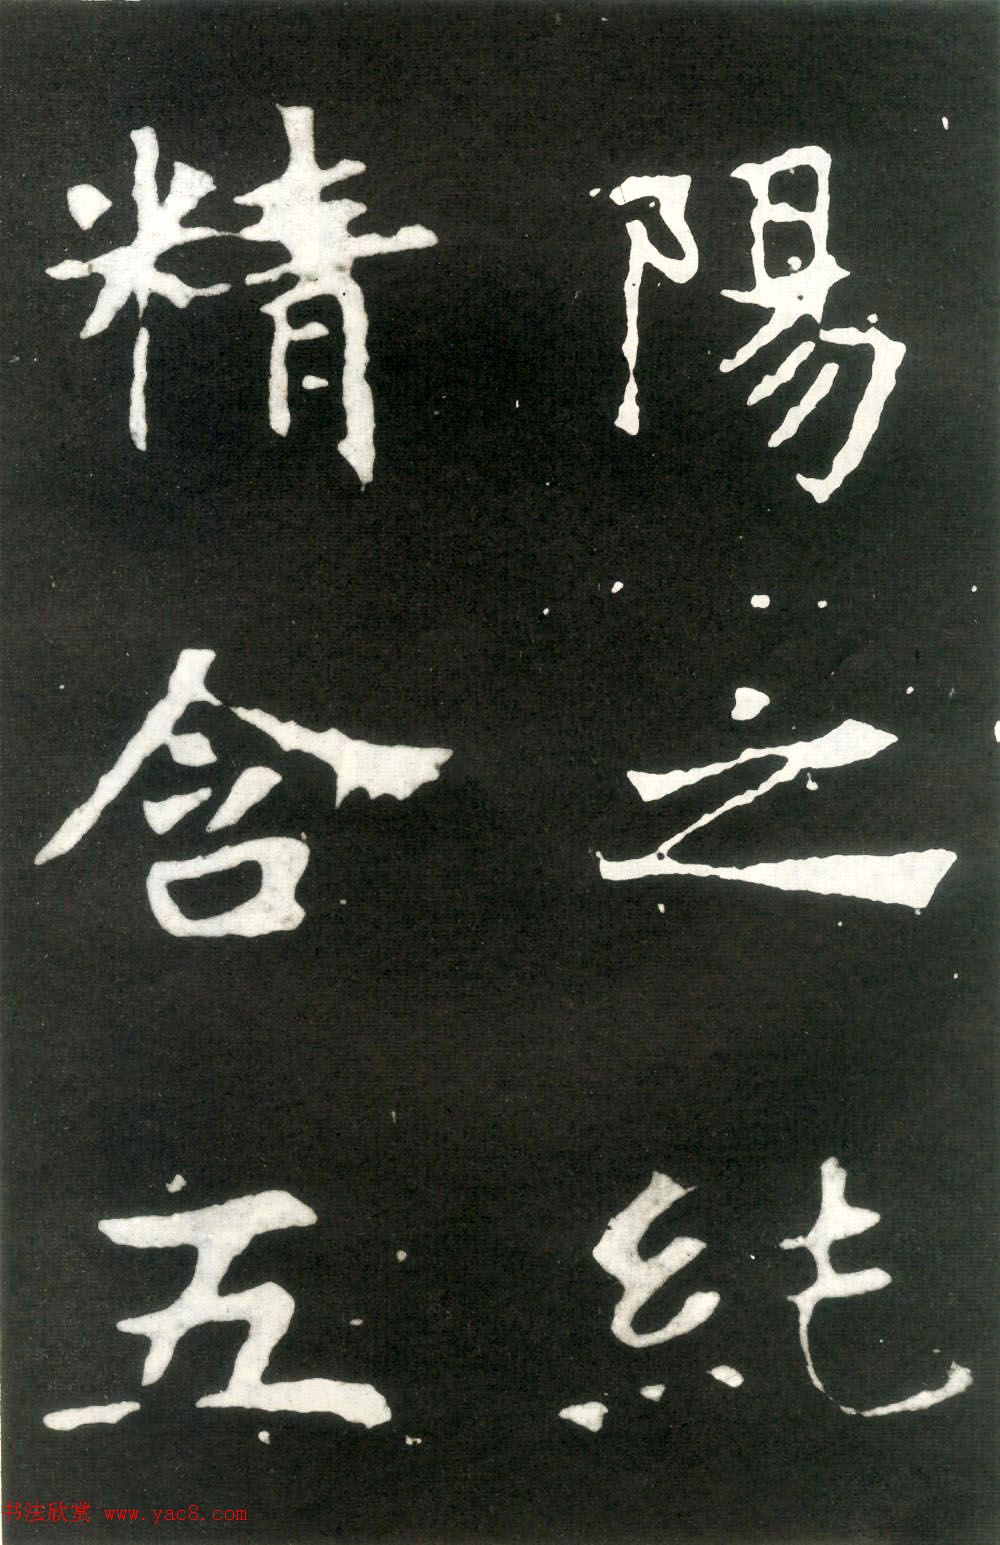 陽之純
精含五
书法欣赏 www.yac8.com